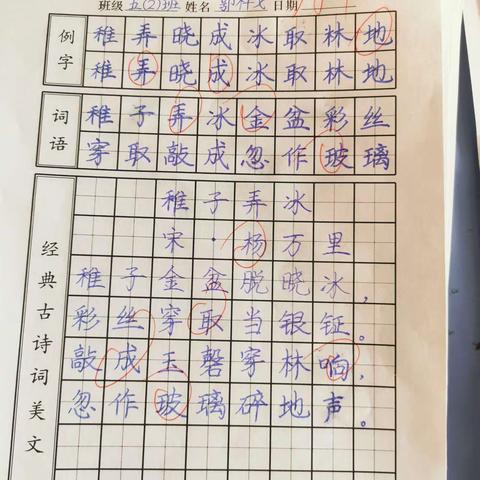 班级 五(2)班 姓名 日期
例字
稚弄晓成冰取林地
稚弄晓成冰取林地
词语
稚子弄冰金盆彩丝
穿取敲成忽作玻璃
经典古诗词美文
稚子弄冰
宋·杨万里
稚子金盆脱晓冰，
彩丝穿取当银钲。
敲成玉磬穿林响，
忽作玻璃碎地声。